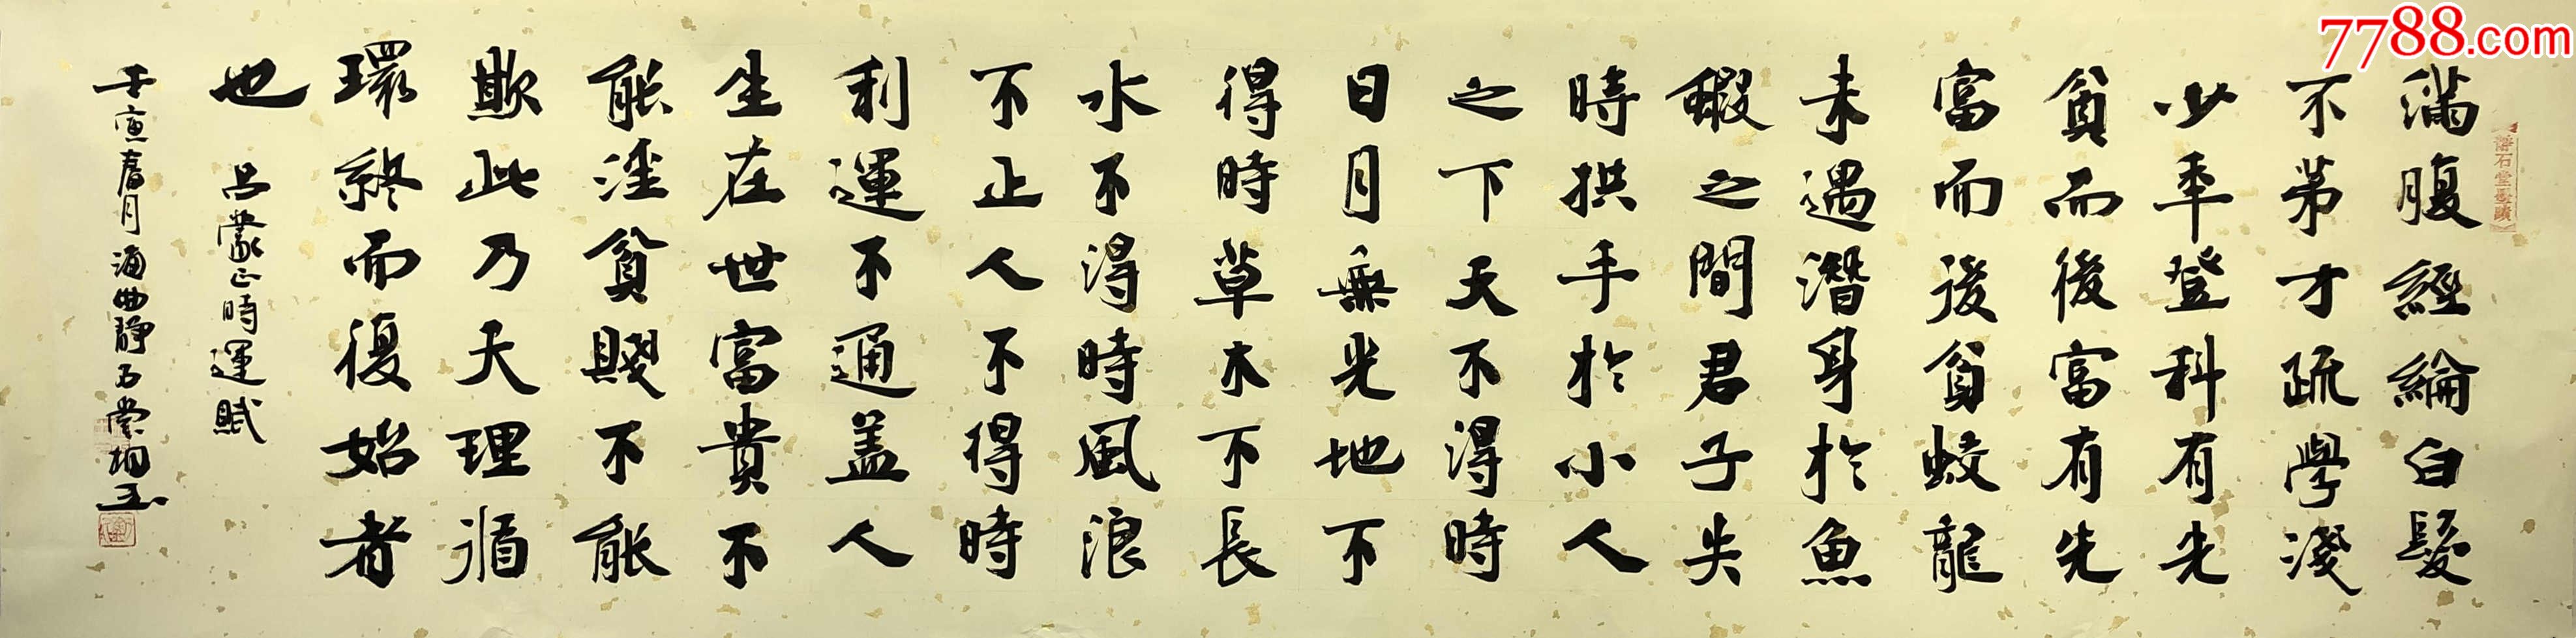 7788.com
靜石堂墨蹟
滿腹經綸白髮
不第才疏學淺
少年登科有先
貧而後富有先
富而後貧蛟龍
未遇潛身於魚
鰕之間君子失
時拱手於小人
之下天不得時
日月無光地不
得時草木不長
水不得時風浪
不止人不得時
利運不通盖人
生在世富貴不
能淫貧賤不能
欺此乃天理循
環終而復始者
也 吕蒙正時運賦
壬寅春月海曲靜石堂